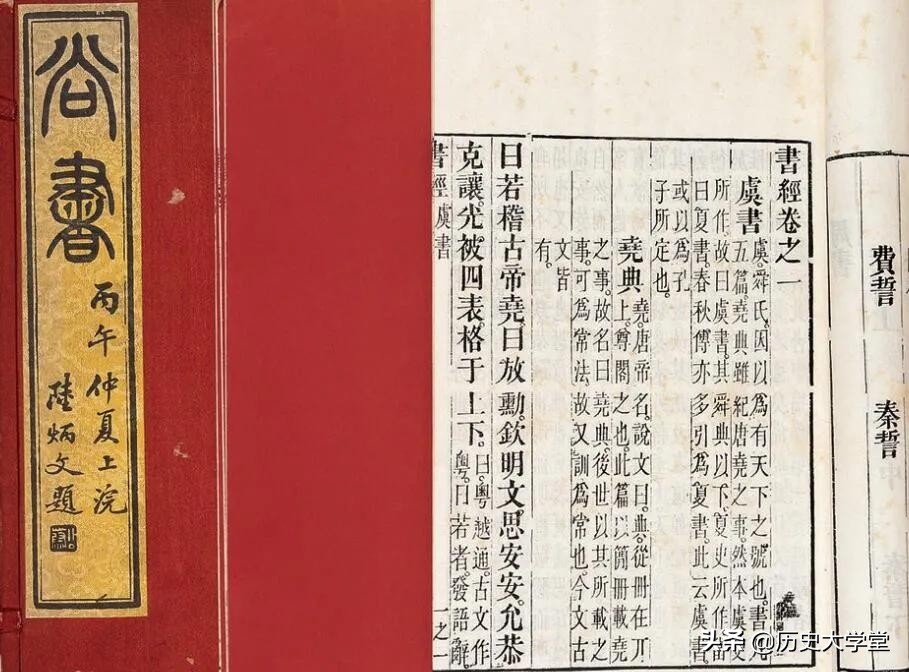 尚書
丙午仲夏上浣
陸炳文題
費誓
秦誓
書經卷之一
虞書 虞。舜氏。因以為有天下之號也。書凡
五篇。堯典雖紀唐堯之事。然本虞史
所作。故曰虞書。其舜典以下。夏史所作。當
曰夏書。春秋傳亦多引為夏書。此云虞書。
或以為孔
子所定也。
堯典 堯。唐帝名。說文曰。典。從冊在丌
上。尊閣之也。此篇以簡冊載堯
之事。故名曰堯典。後世以其所載之
事。可為常法。故又訓為常也。今文古
文皆
有。
曰若稽古帝堯。曰放勳。欽明文思安安。允恭
克讓。光被四表。格于上下。曰粵越通。古文作
粵。曰若者。發語辭
書經 虞書 一之一
头条 @历史大学堂